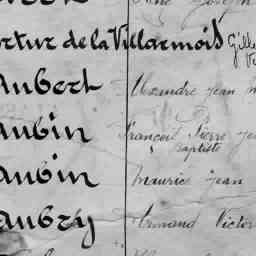 de la Villarmois Gille
Aubert Alexandre Jean M
Aubin François Pierre Je
Baptiste
Aubin Maurice Jean
Aubry Armand Victor